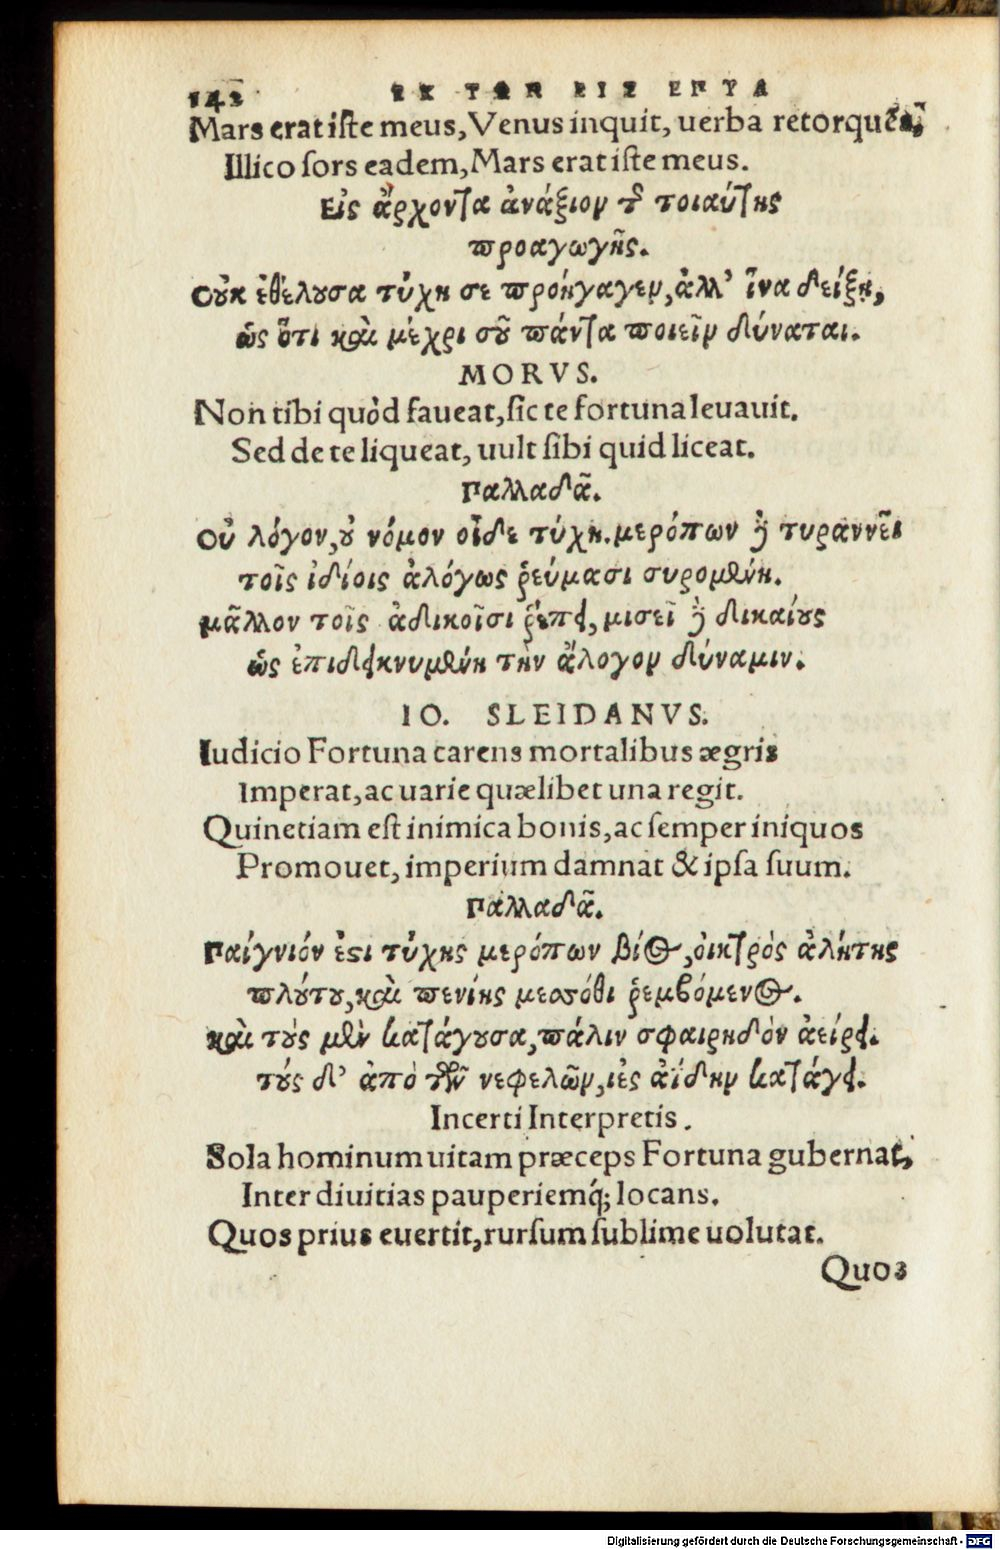 142 ΕΚ ΤΩΝ ΕΙΣ ΕΠΤΑ
Mars erat iſte meus, Venus inquit, uerba retorquẽs,
Illico ſors eadem, Mars erat iſte meus.
Εἰς ἄρχοντα ἀνάξιον τῆς τοιαύτης
προαγωγῆς.
Οὐκ ἐθέλουσα τύχη σε προήγαγεν, ἀλλ᾽ ἵνα δείξῃ,
ὡς ὅτι καὶ μέχρι σοῦ πάντα ποιεῖν δύναται.
MORVS.
Non tibi quòd faueat, ſic te fortuna leuauit.
Sed de te liqueat, uult ſibi quid liceat.
Παλλαδᾶ.
Οὐ λόγον, οὐ νόμον οἶδε τύχη. μερόπων δὲ τυραννεῖ
τοῖς ἰδίοις ἀλόγως ῥεύμασι συρομένη.
μᾶλλον τοῖς ἀδικοῖσι ῥέπει, μισεῖ δὲ δικαίους
ὡς ἐπιδεικνυμένη τὴν ἄλογον δύναμιν.
IO. SLEIDANVS.
Iudicio Fortuna carens mortalibus ægris
Imperat, ac uarie quælibet una regit.
Quinetiam eſt inimica bonis, ac ſemper iniquos
Promouet, imperium damnat & ipſa ſuum.
Παλλαδᾶ.
Παίγνιόν ἐστι τύχης μερόπων βίος, οἰκτρὸς ἀλήτης
πλούτου, καὶ πενίης μεσσόθι ῥεμβόμενος.
καὶ τοὺς μὲν κατάγουσα, πάλιν σφαιρηδὸν ἀείρει.
τούς δ᾽ ἀπὸ τῶν νεφελῶν, εἰς ἀΐδην κατάγει.
Incerti Interpretis.
Sola hominum uitam præceps Fortuna gubernat,
Inter diuitias pauperiemq́; locans.
Quos prius euertit, rurſum ſublime uolutat.
Quos
Digitalisierung gefördert durch die Deutsche Forschungsgemeinschaft - DFG